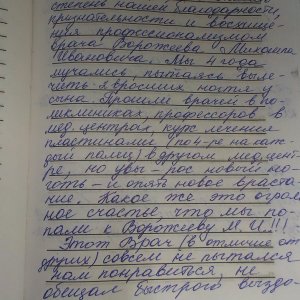 степень нашей благодарности,
признательности и восхище-
ния профессионализмом
врача Ворожеева Михаила
Ивановича. Мы 4 года
мучались, пытаясь выле-
чить 2 вросших ногтя у
сына. Прошли врачей в по-
ликлиниках, профессоров в
мед. центрах, курс лечения
пластинами (по 4 р-ле на каж-
дый палец) в другом мед. цент-
ре, но увы - рос новый но-
готь - и опять новое враста-
ние. Какое же это огром-
ное счастье что мы по-
пали к Ворожееву М. И.!!!
Этот Врач (в отличие от
других) совсем не пытался
нам понравиться, не
обещал быстрого выздо-